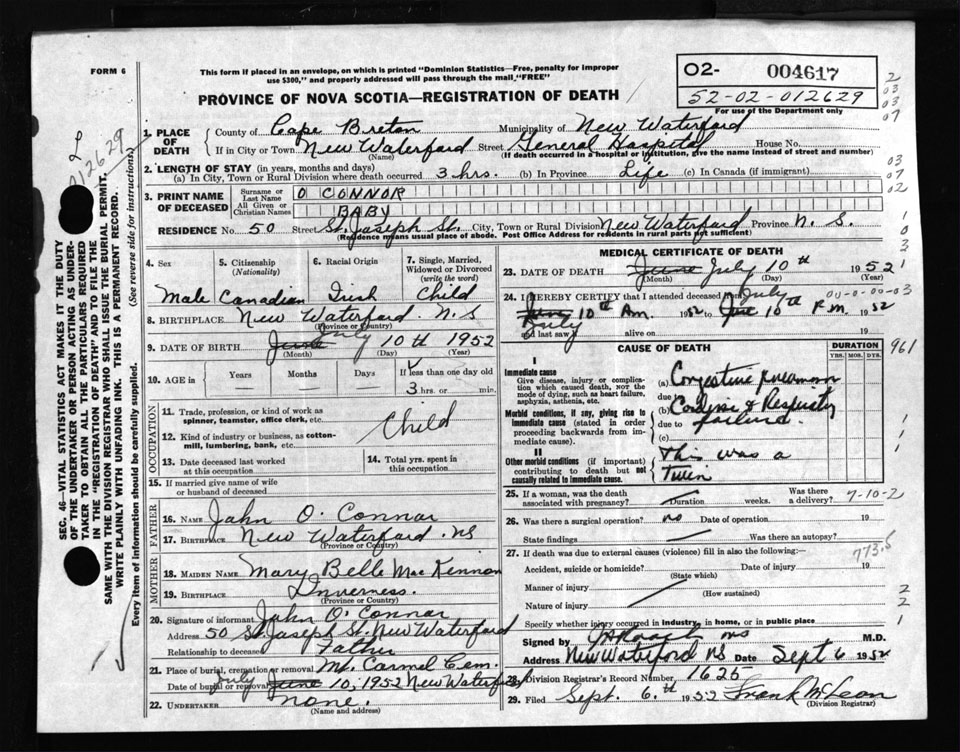 FORM 6
This form if placed in an envelope, on which is printed "Dominion Statistics—Free, penalty for improper
use $300," and properly addressed will pass through the mail "FREE"
PROVINCE OF NOVA SCOTIA—REGISTRATION OF DEATH
02- 004617
52-02-012629
For use of the Department only
1. PLACE OF DEATH
County of Cape Breton Municipality of New Waterford
If in City or Town New Waterford Street General Hospital House No.
(Name) (If death occurred in a hospital or institution, give the name instead of street and number)
2. LENGTH OF STAY (in years, months and days)
(a) In City, Town or Rural Division where death occurred 3 hrs. (b) In Province Life (c) In Canada (if immigrant)
3. PRINT NAME OF DECEASED
Surname or Last Name O CONNOR
All Given or Christian Names BABY
RESIDENCE No. 50 Street St. Joseph St. City, Town or Rural Division New Waterford Province N. S.
(Residence means usual place of abode. Post Office Address for residents in rural parts not sufficient)
4. Sex 5. Citizenship (Nationality) 6. Racial Origin 7. Single, Married, Widowed or Divorced (write the word)
Male Canadian Irish Child
8. BIRTHPLACE New Waterford N.S
(Province or Country)
9. DATE OF BIRTH June July 10th 1952
(Month) (Day) (Year)
10. AGE in Years Months Days If less than one day old
3 hrs. or min.
OCCUPATION
11. Trade, profession, or kind of work as spinner, teamster, office clerk, etc.
Child
12. Kind of industry or business, as cotton-mill, lumbering, bank, etc.
13. Date deceased last worked at this occupation 14. Total yrs. spent in this occupation
15. If married give name of wife or husband of deceased
FATHER
16. NAME John O. Connor
17. BIRTHPLACE New Waterford. NS
(Province or Country)
MOTHER
18. MAIDEN NAME Mary Belle MacKennon
19. BIRTHPLACE Inverness.
(Province or Country)
20. Signature of informant John O. Connor
Address 50 St Joseph St. New Waterford
Relationship to deceased Father
21. Place of burial, cremation or removal Mt. Carmel Cem.
Date of burial or removal June July 10, 1952 New Waterford
22. UNDERTAKER none.
(Name and address)
MEDICAL CERTIFICATE OF DEATH
23. DATE OF DEATH June July 10th 1952
(Month) (Day) (Year)
24. I HEREBY CERTIFY that I attended deceased from July
June 10th Am. 1952 to June 10th P.M. 1952
July
and last saw alive on 19
00-0-00-03
CAUSE OF DEATH DURATION
YRS. MOS. DYS.
961
I
Immediate cause
Give disease, injury or complication which caused death, not the mode of dying, such as heart failure, asphyxia, asthenia, etc.
(a) Congestive pneumon
due to
Morbid conditions, if any, giving rise to immediate cause (stated in order proceeding backwards from immediate cause).
(b) & Respirty
due to failure.
(c)
II
Other morbid conditions (if important) contributing to death but not causally related to immediate cause.
This was a
Twin
25. If a woman, was the death associated with pregnancy? Duration weeks. Was there a delivery?
7-10-2
26. Was there a surgical operation? no Date of operation 19
State findings Was there an autopsy?
27. If death was due to external causes (violence) fill in also the following:—
773.5
Accident, suicide or homicide? Date of injury 19
(State which)
Manner of injury
(How sustained)
Nature of injury
Specify whether injury occurred in industry, in home, or in public place
Signed by M.D.
Address New Waterford NS Date Sept 6 1952
28. Division Registrar's Record Number 1625
29. Filed Sept. 6th 1952 Frank McLean
(Division Registrar)
SEC. 46—VITAL STATISTICS ACT MAKES IT THE DUTY
OF THE UNDERTAKER OR PERSON ACTING AS UNDERTAKER TO OBTAIN ALL THE PARTICULARS REQUIRED
IN THE "REGISTRATION OF DEATH" AND TO FILE THE
SAME WITH THE DIVISION REGISTRAR WHO SHALL ISSUE THE BURIAL PERMIT.
WRITE PLAINLY WITH UNFADING INK. THIS IS A PERMANENT RECORD.
Every item of information should be carefully supplied. (See reverse side for instructions)
L 012629